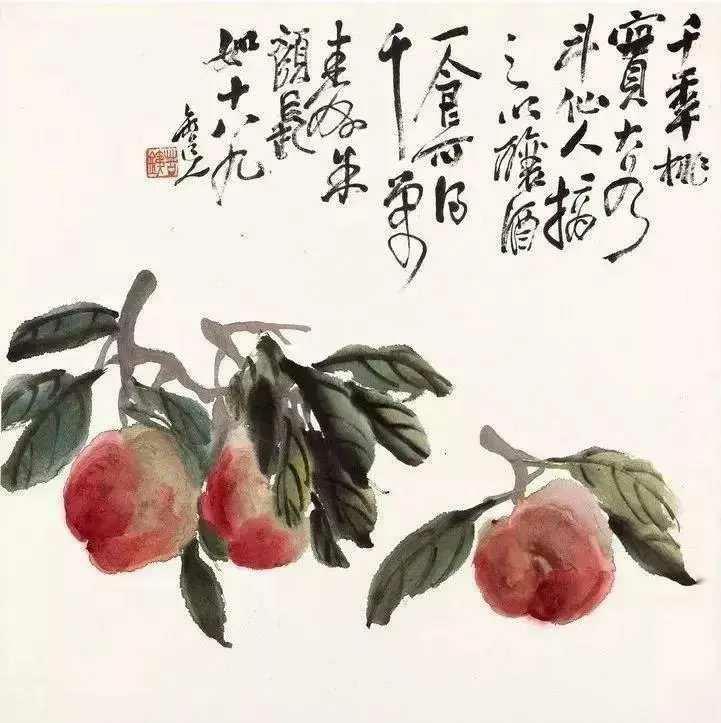 千年桃
實大於
斗仙人摘
之以釀酒
一食可得
千萬
壽朱
顏長
如十八九
苦鐵